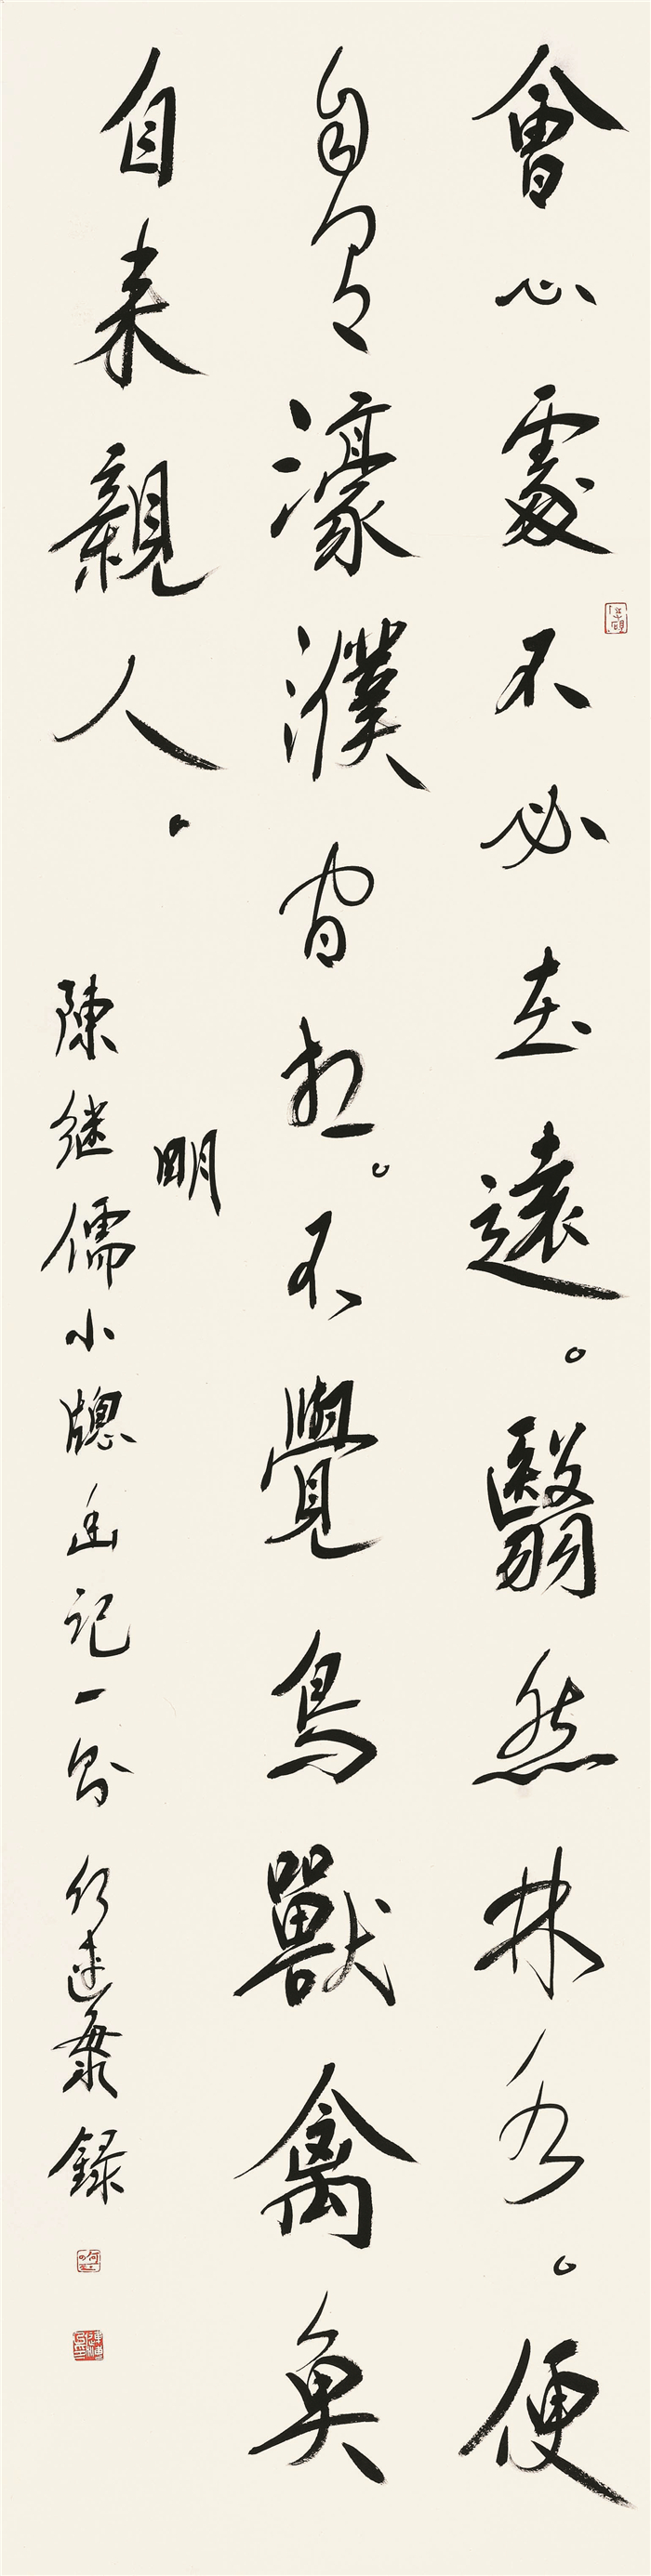 會心處不必在遠。翳然林水。便
自有濠濮間想。不覺鳥獸禽魚
自来親人。
明
陳继儒小牕幽记一則 錄